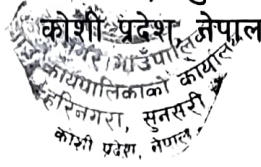 कोशी प्रदेश, नेपाल
गाउँपालिका
कार्यपालिकाको कार्यालय
हरिनगरा, सुनसरी
कोशी प्रदेश, नेपाल